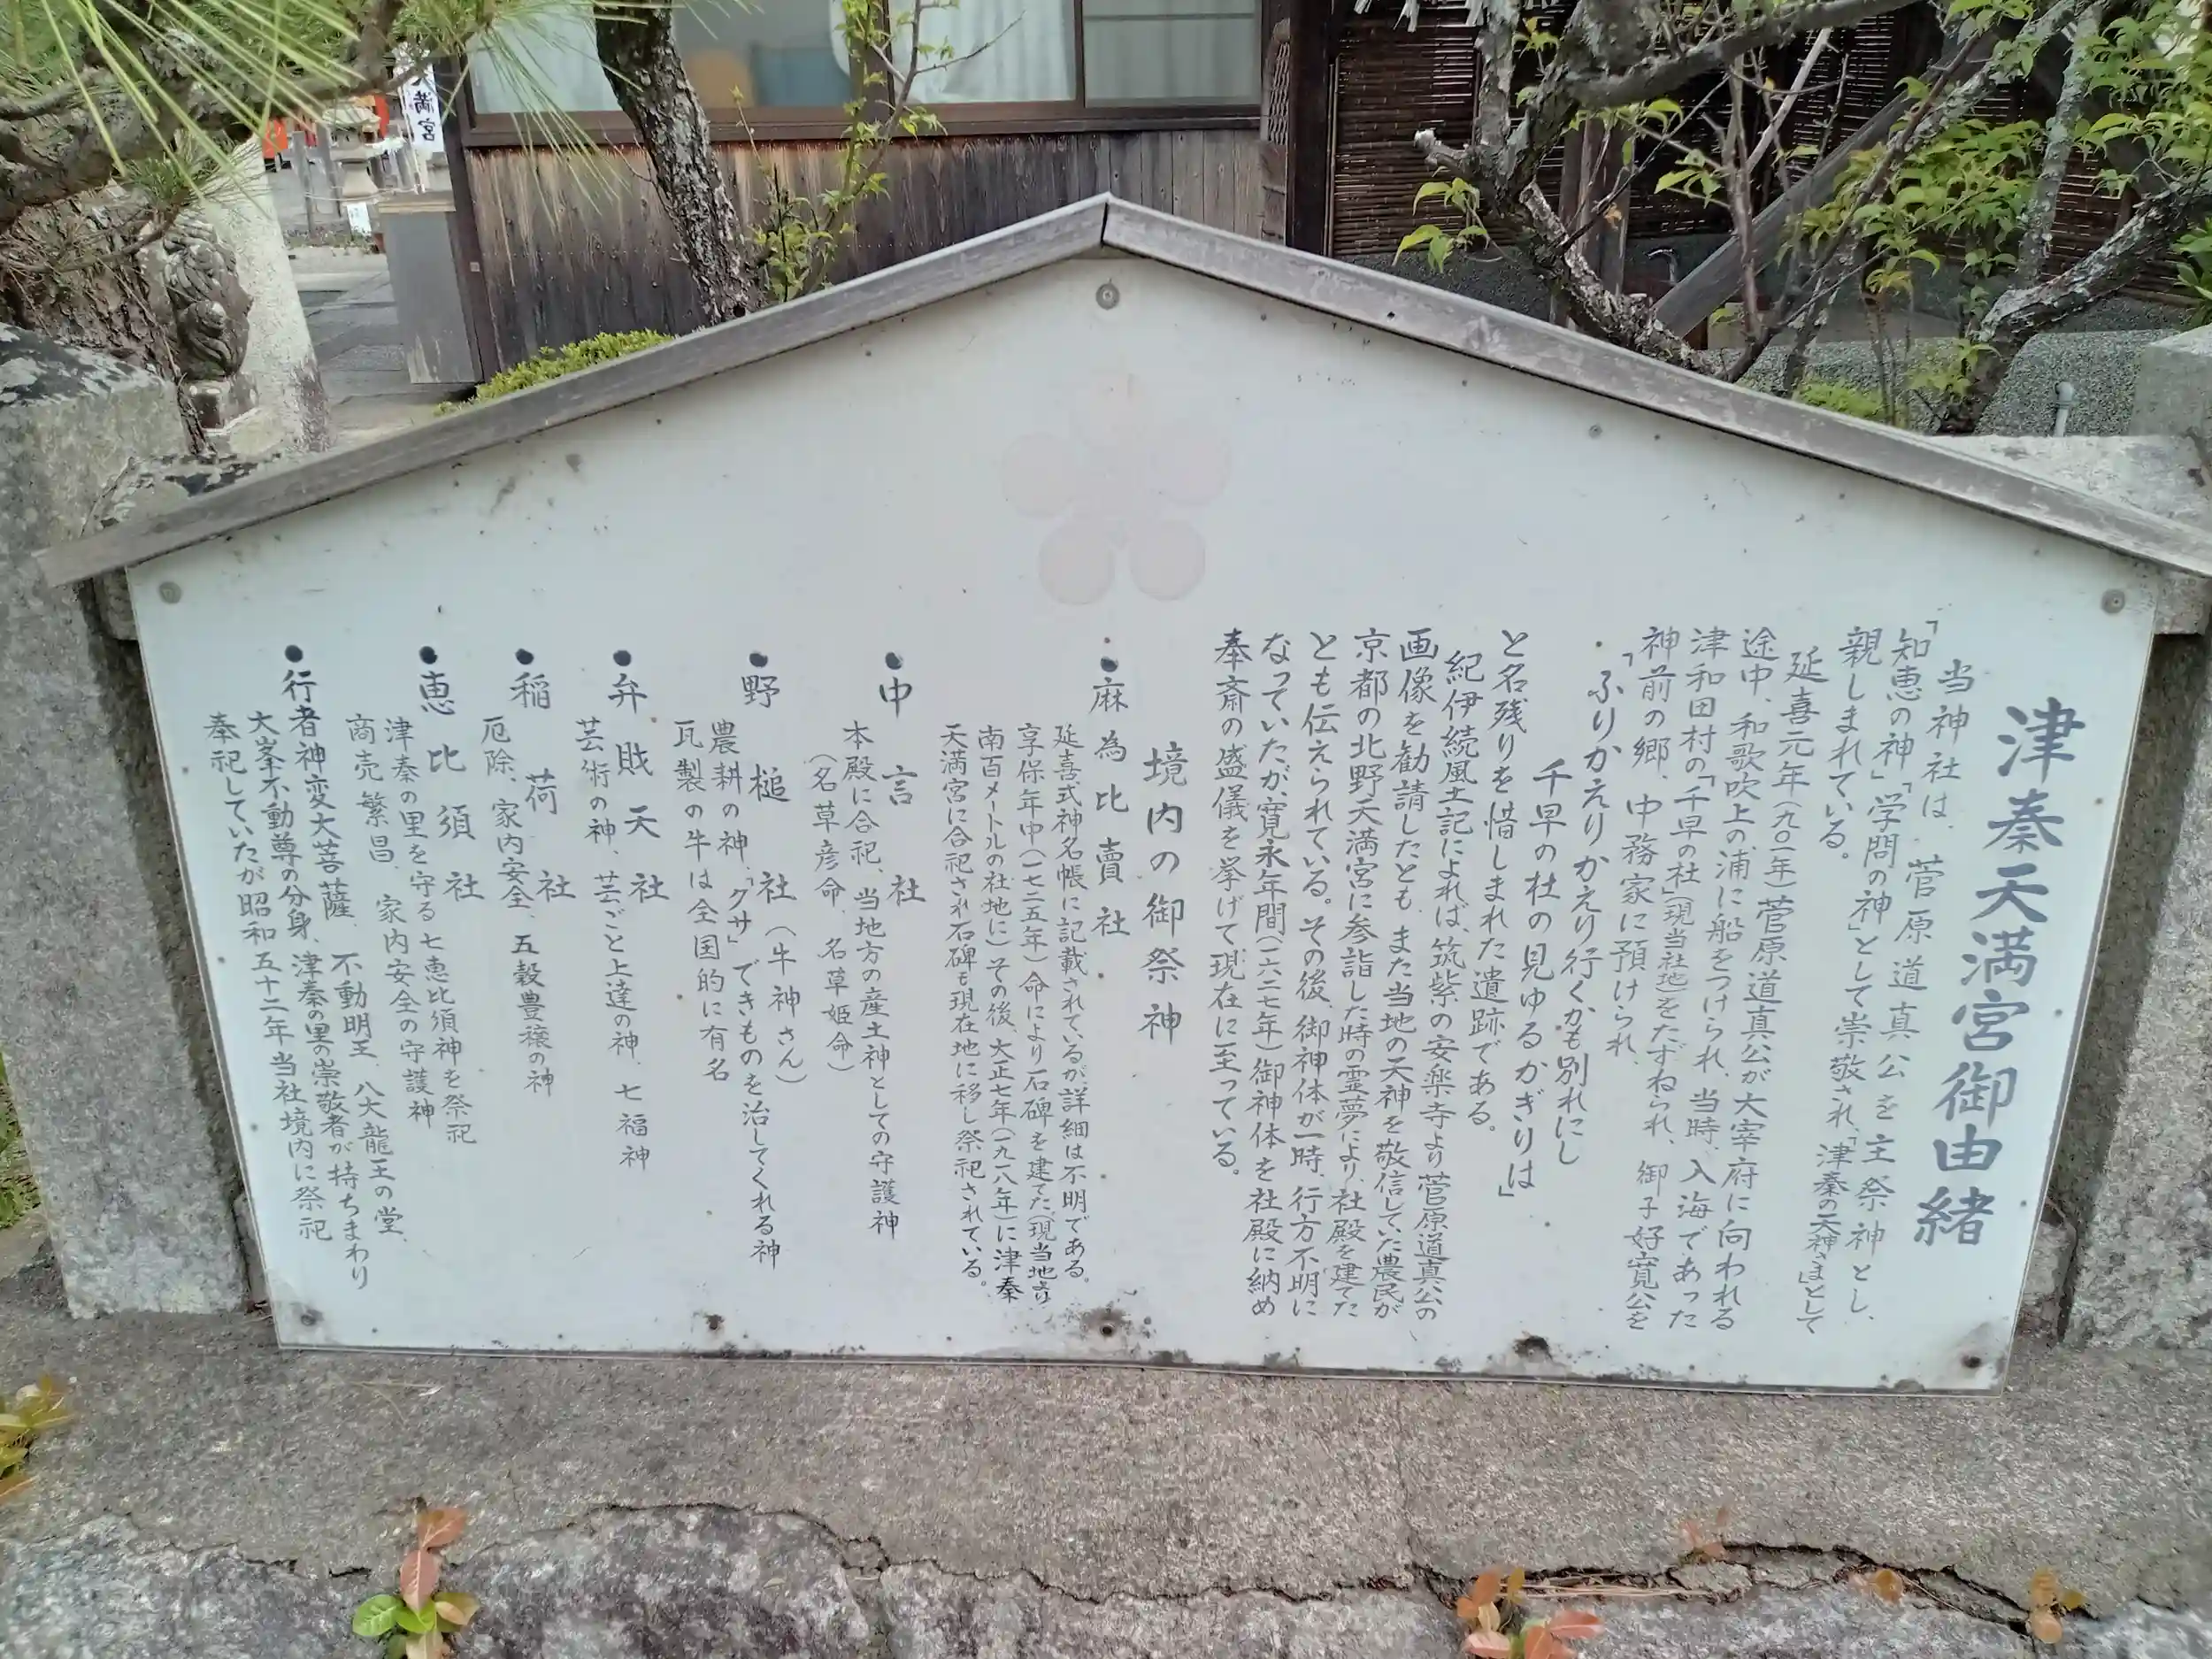 満宮
津秦天満宮御由緒
当神社は、菅原道真公を主祭神とし、
「知恵の神」「学問の神」として崇敬され、「津秦の天神さま」として
親しまれている。
延喜元年(九〇一年)菅原道真公が大宰府に向われる
途中、和歌吹上の浦に船をつけられ、当時、入海であった
津和田村の「千早の社」(現当社地)をたずねられ、御子好寛公を
神前の郷、中務家に預けられ、
「ふりかえりかえり行くかも別れにし
千早の杜の見ゆるかぎりは」
と名残りを惜しまれた遺跡である。
紀伊続風土記によれば、筑紫の安楽寺より菅原道真公の
画像を勧請したとも、また当地の天神を敬信していた農民が
京都の北野天満宮に参詣した時の霊夢により、社殿を建てた
とも伝えられている。その後、御神体が一時、行方不明に
なっていたが、寛永年間(一六二七年)御神体を社殿に納め
奉斎の盛儀を挙げて現在に至っている。
境内の御祭神
●麻為比賣社
延喜式神名帳に記載されているが、詳細は不明である。
享保年中(一七二五年)命により石碑を建てた(現当地より
南百メートルの社地に)その後、大正七年(一九一八年)に津秦
天満宮に合祀され石碑も現在地に移し祭祀されている。
●中言社
本殿に合祀、当地方の産土神としての守護神
(名草彦命、名草姫命)
●野槌社(牛神さん)
農耕の神、「クサ」できものを治してくれる神
瓦製の牛は全国的に有名
●弁財天社
芸術の神、芸ごと上達の神、七福神
●稲荷社
厄除、家内安全、五穀豊穣の神
●恵比須社
津秦の里を守る七恵比須神を祭祀
商売繁昌、家内安全の守護神
●行者神変大菩薩、不動明王、八大龍王の堂、
大峯不動尊の分身、津秦の里の崇敬者が持ちまわり
奉祀していたが昭和五十二年当社境内に祭祀